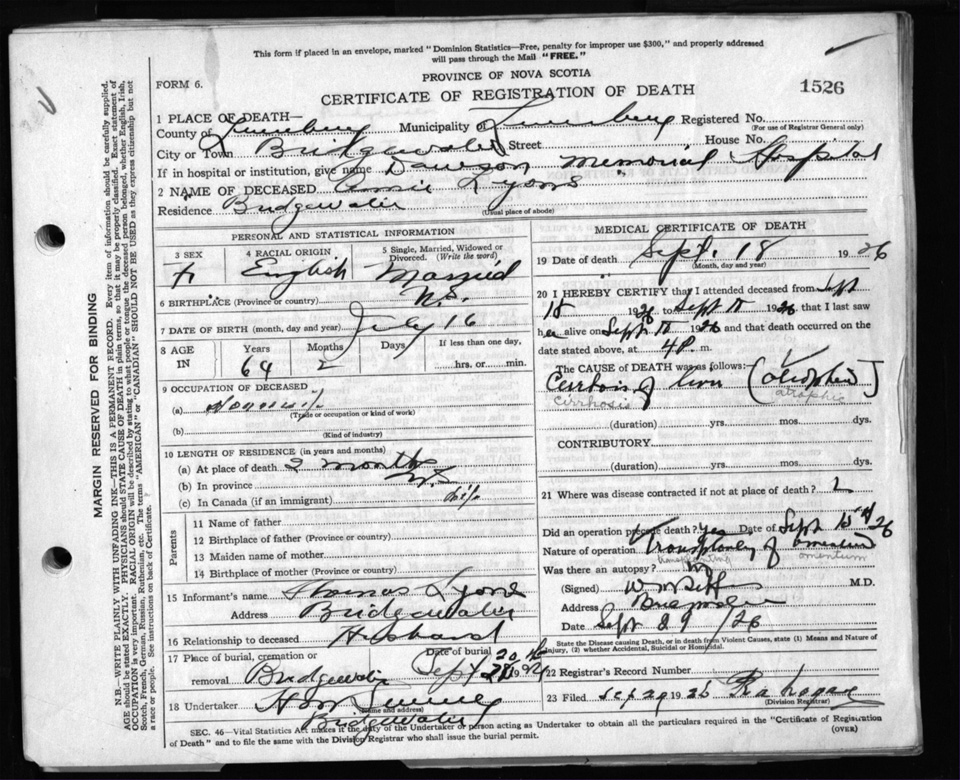 This form if placed in an envelope, marked "Dominion Statistics—Free, penalty for improper use $300," and properly addressed
will pass through the Mail "FREE."
PROVINCE OF NOVA SCOTIA
FORM 6.
CERTIFICATE OF REGISTRATION OF DEATH
1526
1 PLACE OF DEATH—
County of Lunenburg Municipality of Lunenburg Registered No.
(For use of Registrar General only)
City or Town Bridgewater Street House No.
If in hospital or institution, give name Dawson Memorial Hospital
2 NAME OF DECEASED Annie Lyons
Residence Bridgewater
(Usual place of abode)
PERSONAL AND STATISTICAL INFORMATION
3 SEX
F
4 RACIAL ORIGIN
English
5 Single, Married, Widowed or Divorced. (Write the word)
Married
6 BIRTHPLACE (Province or country) N.S.
7 DATE OF BIRTH (month, day and year) July 16
8 AGE IN
Years Months Days If less than one day,
64 2 hrs. or min.
9 OCCUPATION OF DECEASED
(a) Housewife
(Trade or occupation or kind of work)
(b)
(Kind of industry)
10 LENGTH OF RESIDENCE (in years and months)
(a) At place of death 2 months
(b) In province N.S.
(c) In Canada (if an immigrant) life
Parents
11 Name of father
12 Birthplace of father (Province or country)
13 Maiden name of mother
14 Birthplace of mother (Province or country)
15 Informant's name Thomas Lyons
Address Bridgewater
16 Relationship to deceased Husband
17 Place of burial, cremation or removal Bridgewater
Date of burial Sept 20 1926
18 Undertaker
Bridgewater
MEDICAL CERTIFICATE OF DEATH
19 Date of death Sept. 18 1926
(Month, day and year)
20 I HEREBY CERTIFY that I attended deceased from Sept
15 1926 to Sept 18 1926 that I last saw
her alive on Sept 18 1926 and that death occurred on the
date stated above, at 4 P. m.
The CAUSE OF DEATH was as follows:
Cirrhosis of liver (atrophic)
cirrhosis atrophic
(duration) yrs. mos. dys.
CONTRIBUTORY
(duration) yrs. mos. dys.
21 Where was disease contracted if not at place of death?
Did an operation precede death? Yes Date of Sept 15th 26
Nature of operation Transplanting of omentum
transplanting omentum
Was there an autopsy? No
(Signed) M.D.
Address Bridgewater
Date Sept 29/26
State the Disease causing Death, or in death from Violent Causes, state (1) Means and Nature of
Injury, (2) whether Accidental, Suicidal or Homicidal.
22 Registrar's Record Number
23 Filed Sep 29 1926
(Division Registrar)
SEC. 46—Vital Statistics Act makes it the duty of the Undertaker or person acting as Undertaker to obtain all the particulars required in the "Certificate of Registration
of Death" and to file the same with the Division Registrar who shall issue the burial permit.
(OVER)
MARGIN RESERVED FOR BINDING
N.B.—WRITE PLAINLY WITH UNFADING INK—THIS IS A PERMANENT RECORD. Every item of information should be carefully supplied.
AGE should be stated EXACTLY. PHYSICIANS should STATE CAUSE OF DEATH in plain terms, so that it may be properly classified. Exact statement of
OCCUPATION is very important. RACIAL ORIGIN will be described by stating to what people or tongue the deceased person belonged, whether English, Irish,
Scotch, French, German, Russian, Ruthenian, etc. The terms "AMERICAN" or "CANADIAN" SHOULD NOT BE USED as they express citizenship but not
a race or people. See instructions on back of Certificate.